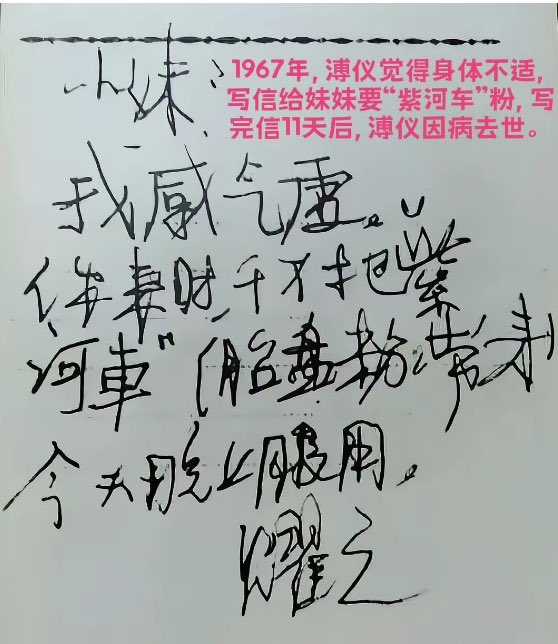 小妹：
1967年，溥仪觉得身体不适，
写信给妹妹要“紫河车”粉，写
完信11天后，溥仪因病去世。
我感气虚。
你来时，千万把“紫
河車”（胎盘粉带来
今天晚上服用。
耀之